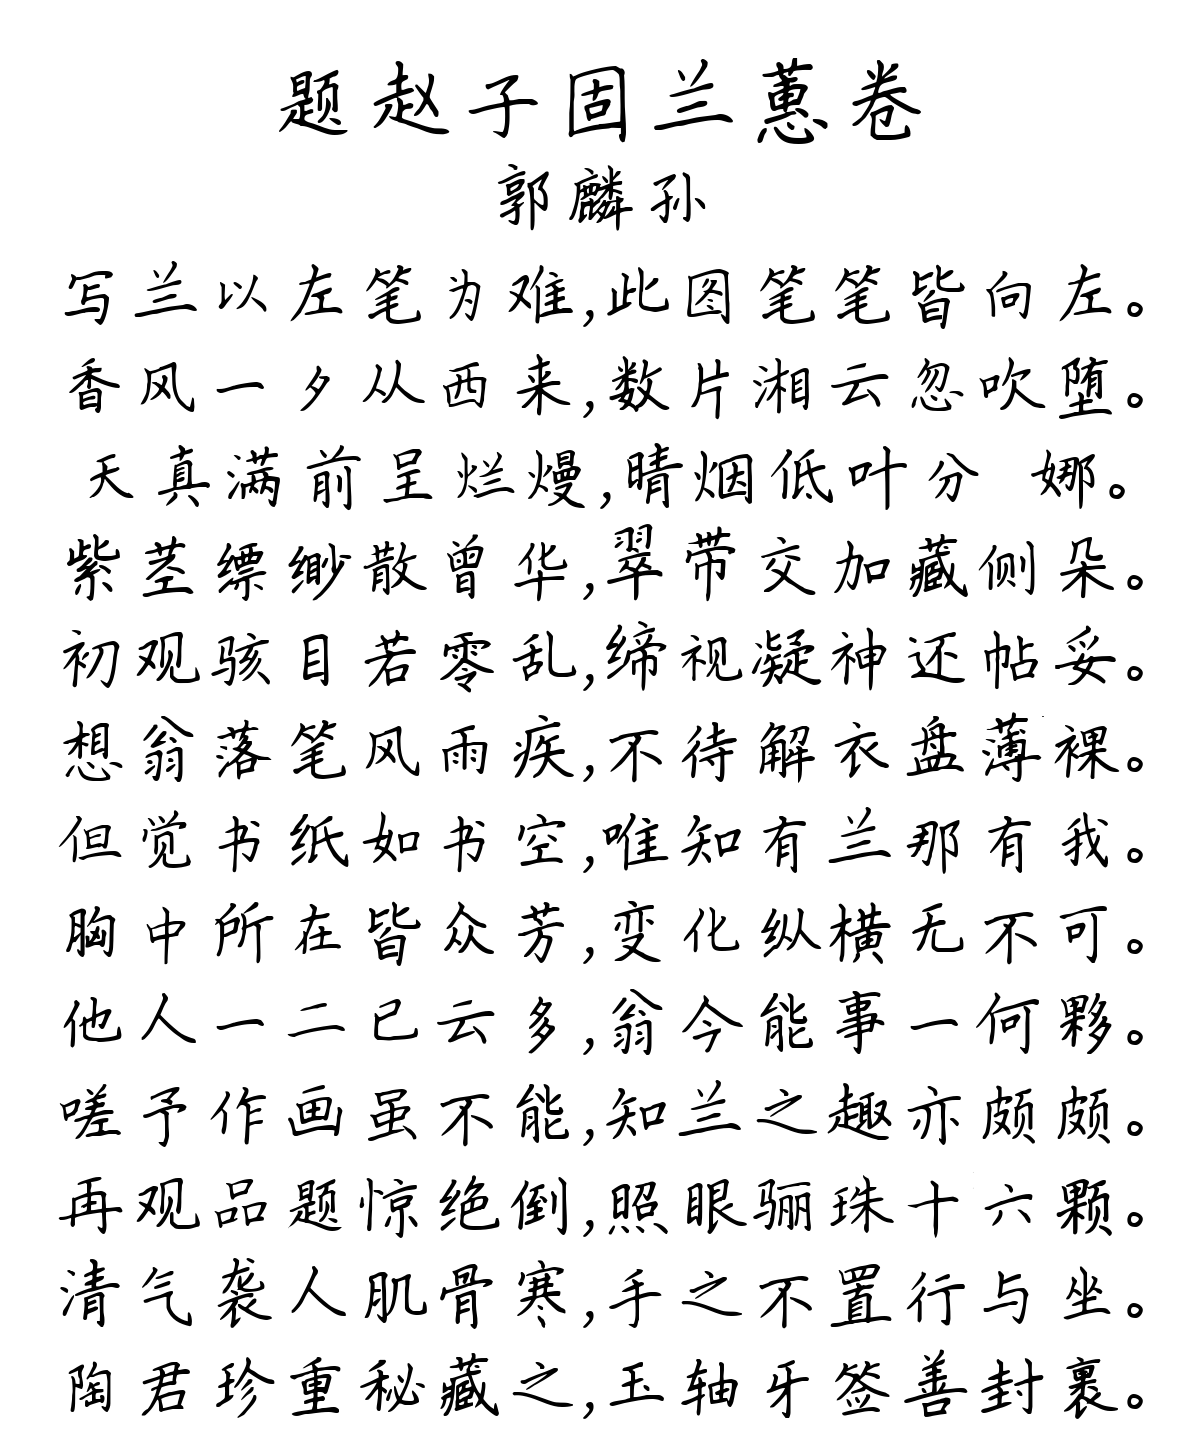 题赵子固兰蕙卷
郭麟孙
写兰以左笔为难,此图笔笔皆向左。
香风一夕从西来,数片湘云忽吹堕。
天真满前呈烂熳,晴烟低叶分 娜。
紫茎缥缈散曾华,翠带交加藏侧朵。
初观骇目若零乱,缔视凝神还帖妥。
想翁落笔风雨疾,不待解衣盘薄裸。
但觉书纸如书空,唯知有兰那有我。
胸中所在皆众芳,变化纵横无不可。
他人一二已云多,翁今能事一何夥。
嗟予作画虽不能,知兰之趣亦颇颇。
再观品题惊绝倒,照眼骊珠十六颗。
清气袭人肌骨寒,手之不置行与坐。
陶君珍重秘藏之,玉轴牙签善封裹。